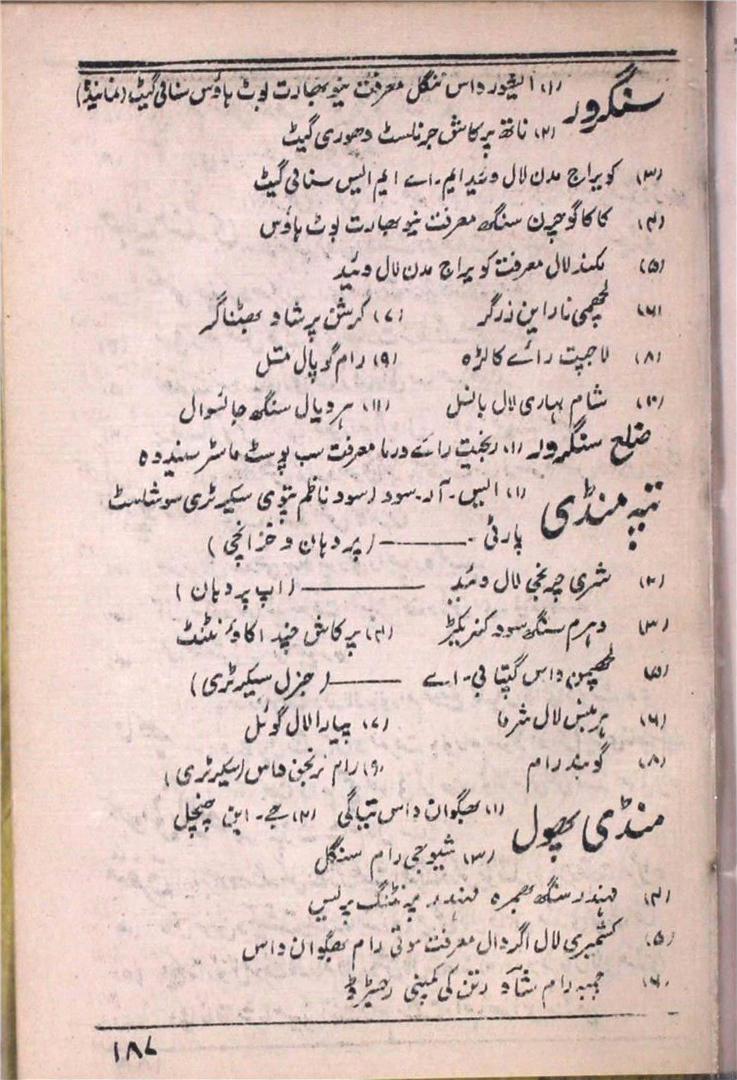 سنگرور (۱) ایشور داس سنگل معرفت نیو بھارت بوٹ ہاؤس سنافی گیٹ (نمائندہ)
(۲) ناتھ پرکاش جرنلسٹ دھوری گیٹ
(۳) کویراج مدن لال وئید ایم۔اے ایم ایس سنافی گیٹ
(۴) کاکا گوچرن سنگھ معرفت نیو بھارت بوٹ ہاؤس
(۵) مکند لال معرفت کویراج مدن لال وئید
(۶) لچھمی نارائن زرگر (۷) کرشن پرشاد بھٹناگر
(۸) لاجپت رائے کالڑہ (۹) رام گوپال متل
(۱۰) شام بہاری لال بانسل (۱۱) ہردیال سنگھ جائسوال
ضلع سنگرور (۱) رنجیت رائے درما معرفت سب پوسٹ ماسٹر سندوہ
تپہ منڈی (۱) ایس۔آر۔سود (سود ناظم پتوی سیکرٹری سوشلسٹ
پارٹی۔ ——— (پردہان و خزانچی)
(۲) شری چرنجی لال وئید ——— (اپ پردہان)
(۳) دہرم سنگھ سود کنریکٹر (۴) پرکاش چند اکاؤنٹنٹ
(۵) لچھمن داس گپتا بی۔اے ——— (جنرل سیکرٹری)
(۶) ہربنس لال شرما (۷) پیارا لال گوئل
(۸) گوبند رام (۹) رام نرنجن داس (سیکرٹری)
منڈی پھول (۱) بھگوان داس تیاگی (۲) جے۔این چنچل
(۳) شیوجی رام سنگل
(۴) مہندر سنگھ بھمرہ مہندر پرنٹنگ پریس
(۵) کشمیری لال اگردال معرفت موتی رام بھگوان داس
(۶) چمبہ رام شاد رتن کی کمپنی رجسٹرڈ
۱۸۷